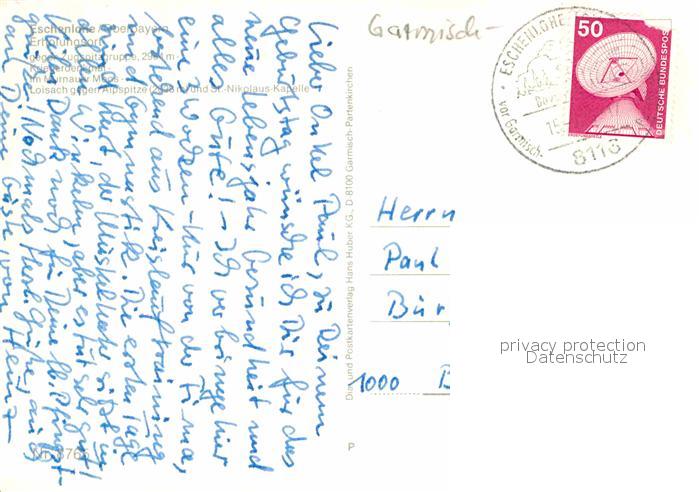 Eschenlohe / Oberbayern
Erholungsort
gegen Zugspitzgruppe, 2964 m -
im Murnauer Moos -
Loisach gegen Alpspitze (2628 m) und St.-Nikolaus-Kapelle
Nr. 8766
Liebe Onkel Paul, zu Deinem
Geburtstag wünsche ich Dir für das
neue Lebensjahr Gesundheit und
alles Gute! - Ich verbringe hier
eine 3 Wochen-Kur von der Firma,
bestehend aus Kreislauftraining
und Gymnastik. Die ersten Tage
der Muskelkater sitzt in
Winkeln, aber es tut sehr gut!
Vielen Dank noch für Deine lb. Pfingst-
grüße! Nochmals herzl. Grüße auch
an Deine Gäste von Heinz
Druck und Postkartenverlag Hans Huber KG., D 8100 Garmisch-Partenkirchen
P
Garmisch-
ESCHENLOHE
vor Garmisch-
8116
50
DEUTSCHE BUNDESPOST
Herrn
Paul
Bür
1000 B
privacy protection
Datenschutz